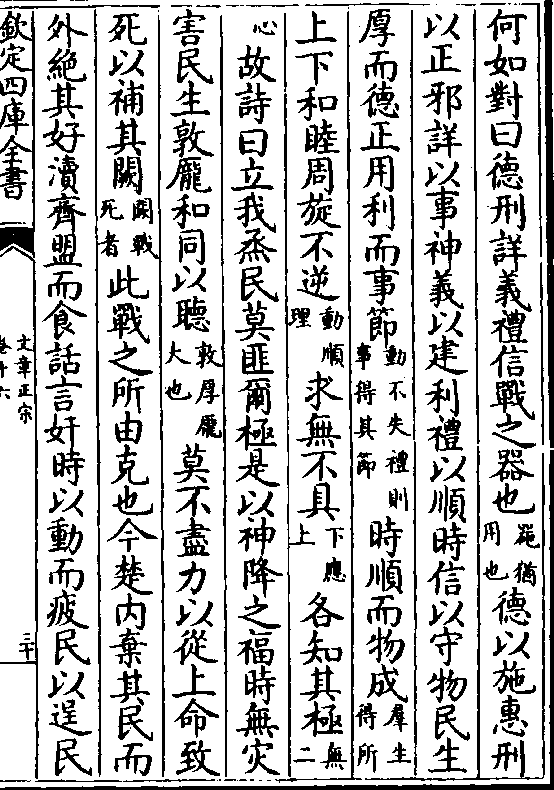 何如對曰德刑詳義禮信戰之器也器猶用也德以施惠刑
以正邪詳以事神義以建利禮以順時信以守物民生
厚而德正用利而事節動不失禮則事得其節時順而物成羣生得所
上下和睦周旋不逆動順理求無不具下應上各知其極無二
心故詩曰立我烝民莫匪爾極是以神降之福時無灾
害民生敦厖和同以聽敦厚厖大也莫不盡力以從上命致
死以補其闕闕戰死者此戰之所由克也今楚内棄其民而
外絶其好瀆齊盟而食話言奸時以動而疲民以逞民
欽定四庫全書
文章正宗
卷十六
三十